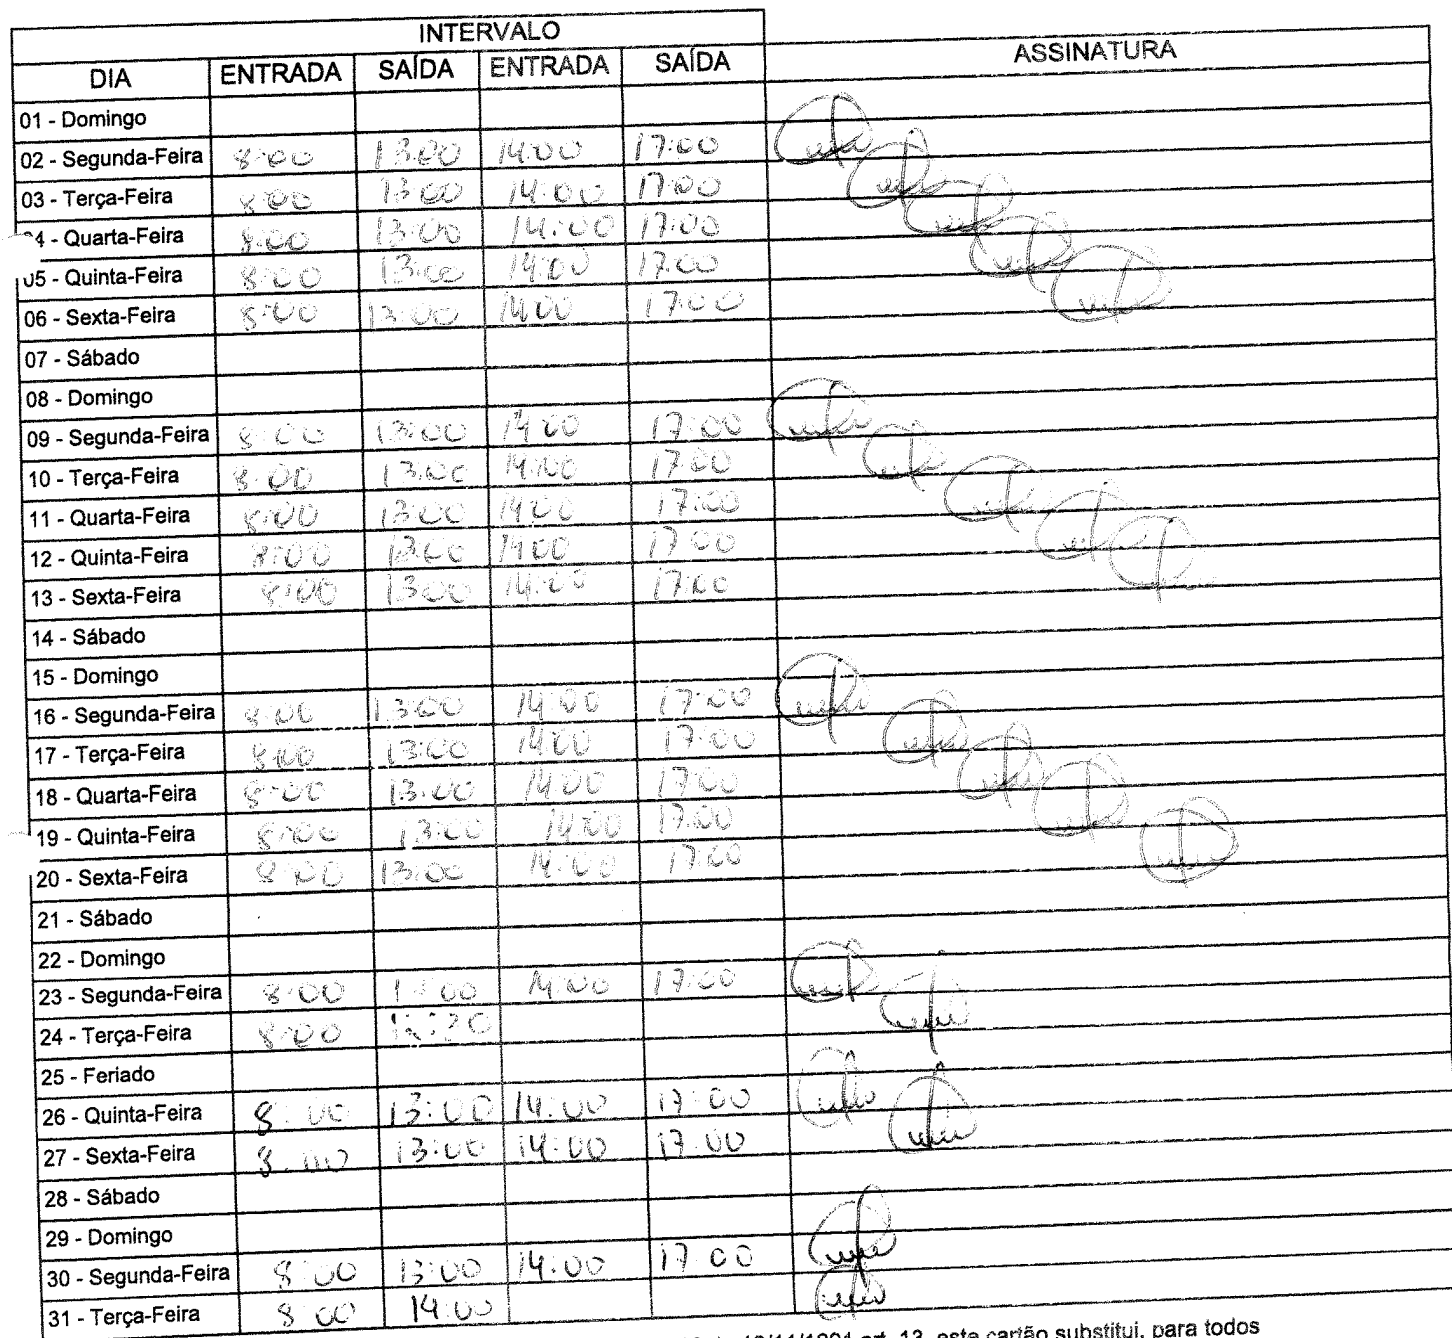 INTERVALO
DIA ENTRADA SAÍDA ENTRADA SAÍDA ASSINATURA
01 - Domingo
02 - Segunda-Feira 8:00 13:00 14:00 17:00
03 - Terça-Feira 8:00 13:00 14:00 17:00
4 - Quarta-Feira 8:00 13:00 14:00 17:00
05 - Quinta-Feira 8:00 13:00 14:00 17:00
06 - Sexta-Feira 8:00 13:00 14:00 17:00
07 - Sábado
08 - Domingo
09 - Segunda-Feira 8:00 13:00 14:00 17:00
10 - Terça-Feira 8:00 13:00 14:00 17:00
11 - Quarta-Feira 8:00 13:00 14:00 17:00
12 - Quinta-Feira 8:00 13:00 14:00 17:00
13 - Sexta-Feira 8:00 13:00 14:00 17:00
14 - Sábado
15 - Domingo
16 - Segunda-Feira 8:00 13:00 14:00 17:00
17 - Terça-Feira 8:00 13:00 14:00 17:00
18 - Quarta-Feira 8:00 13:00 14:00 17:00
19 - Quinta-Feira 8:00 13:00 14:00 17:00
20 - Sexta-Feira 8:00 13:00 14:00 17:00
21 - Sábado
22 - Domingo
23 - Segunda-Feira 8:00 14:00 17:00
24 - Terça-Feira 8:00
25 - Feriado
26 - Quinta-Feira 8:00 13:00 14:00 17:00
27 - Sexta-Feira 8:00 13:00 14:00 17:00
28 - Sábado
29 - Domingo
30 - Segunda-Feira 8:00 13:00 14:00 17:00
31 - Terça-Feira 8:00 14:00
art. 13, este cartão substitui, para todos